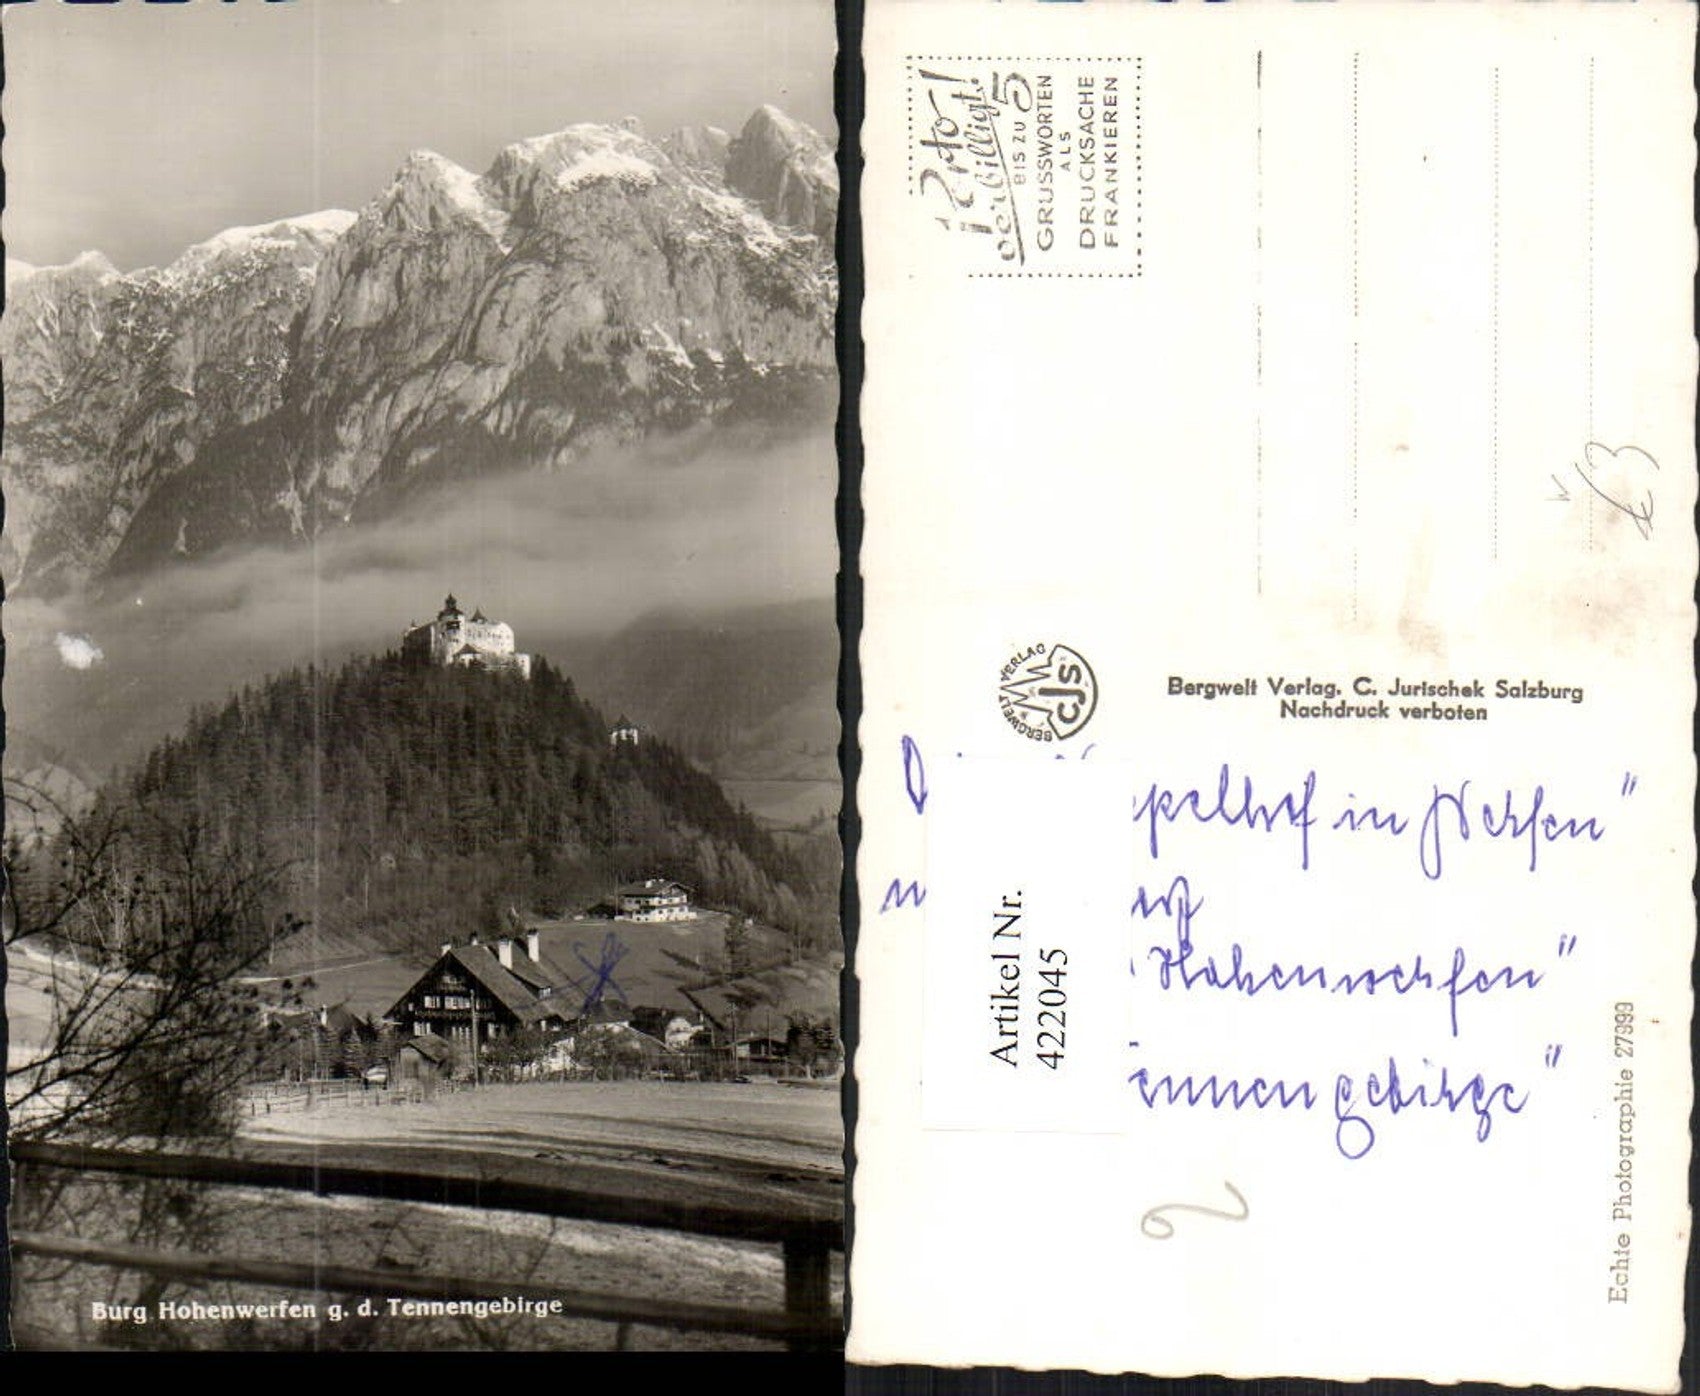 Burg Hohenwerfen g. d. Tennengebirge
Porto
verbilligt!
BIS ZU 5
GRUSSWORTEN
ALS
DRUCKSACHE
FRANKIEREN
BERGWELT VERLAG
CJS
Bergwelt Verlag. C. Jurischek Salzburg
Nachdruck verboten
in Werfen"
Hohenwerfen"
ennengebirge"
Artikel Nr.
422045
Echte Photographie 27399
2